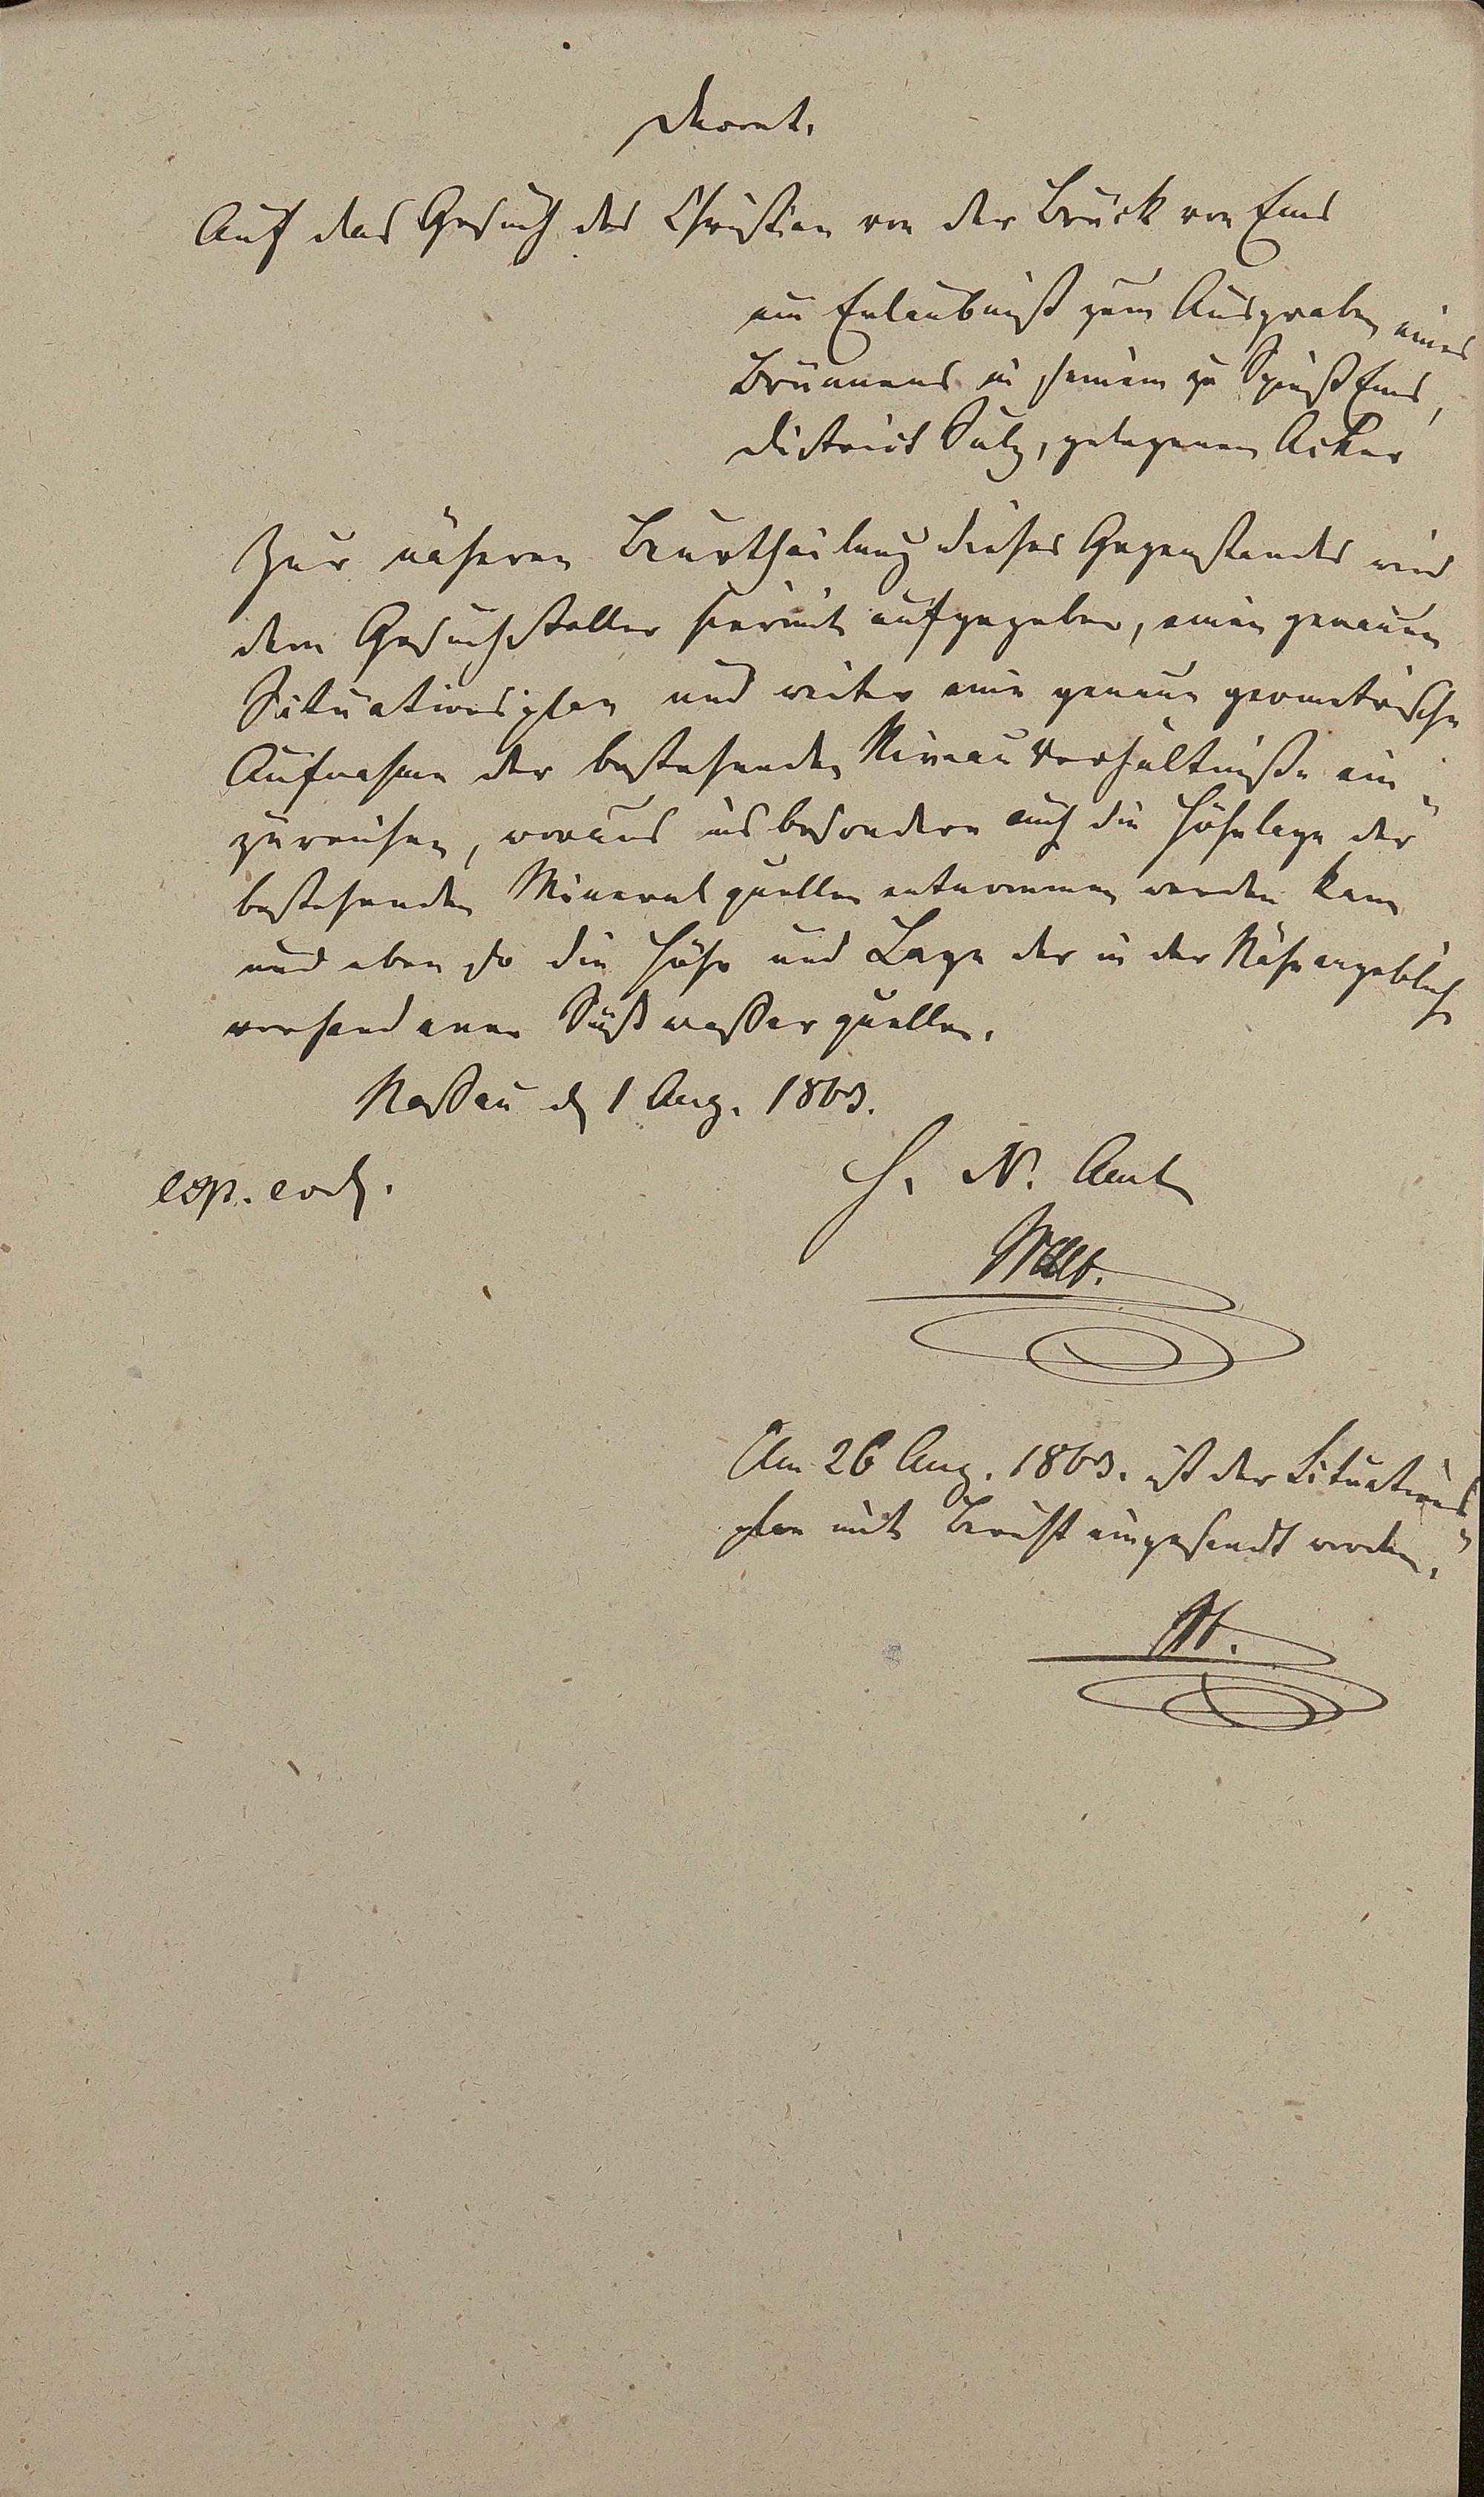 Decret.
Auf das Gesuch des Christian von der Brück von Ems
um Erlaubniß zum Ausgraben eines
Brunnens in seinem zu Spieß Ems,
District Sulz, gelegenen Acker
Zur näheren Beurtheilung dieses Gegenstandes wird
dem Gesuchsteller hiermit aufgegeben, einen genauen
Situationsplan und weiter eine genaue geometrische
Aufnahme der bestehenden Niveau Verhältniße ein-
zureichen, woraus insbesondere auch die Höhelage der
bestehenden Mineralquellen entnommen werden kann
und eben so die Höhe und Lage der in der Nähe angeblich
vorhandenen Süßwasserquellen.
Nassau d 1 Aug. 1863.
exp. eod.
H. N. Amt
Am 26 Aug. 1863. ist der Situations-
plan mit Bericht eingesandt worden.